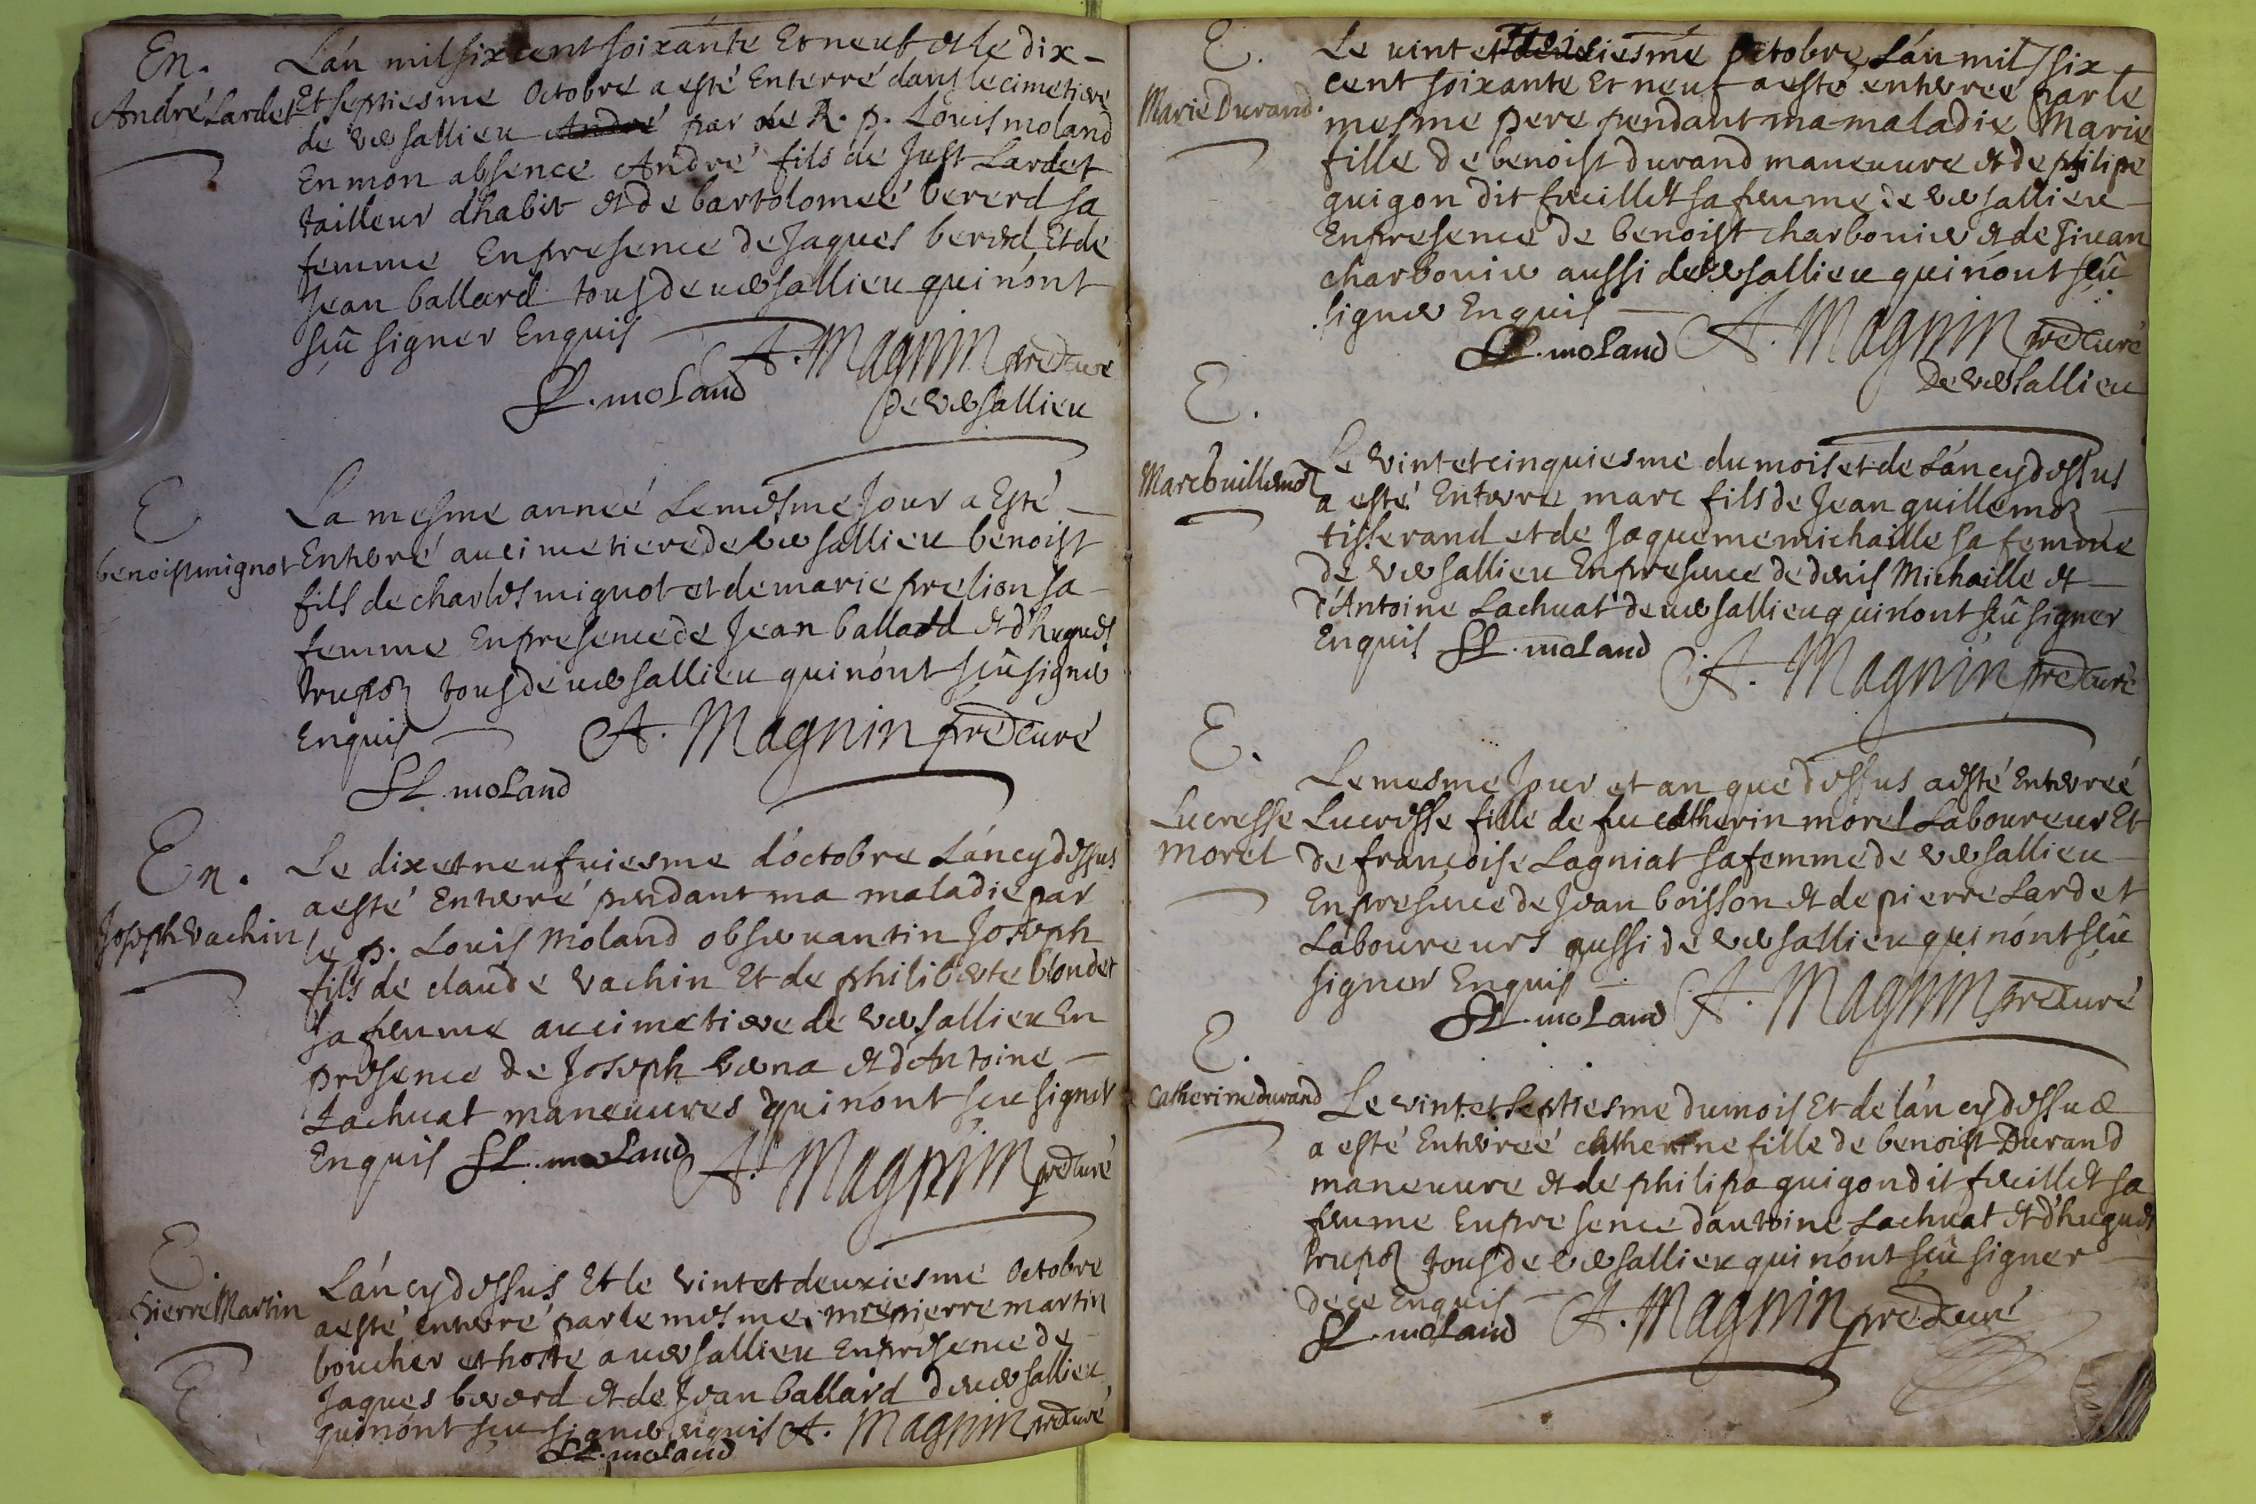 En.
André Lardet
Lán mil six cent soixante Et neuf & le dix –
Et septiesme Octobre a esté Enterré dans le cimetiere
de versallieu André par le R. p. Louis moland
En mon absence André fils de Just Lardet
tailleur d'habit & de bartolomeé bererd sa
femme En presence de Jaques bererd Et de
Jean ballard tous de versallieu qui nónt
sçû signer Enquis
A. Magnin pre Curé
fL. moland de versallieu
E
benoist mignot
La mesme anneé Le mesme Jour a Esté –
Enterré au cimetiere de versallieu benoist
fils de charles mignot et de marie prelion sa –
femme En presence de Jean ballard & d'hugues
trupoz tous de versallieu qui nónt sçû signer
Enquis A. Magnin pre Curé
fL. moland
En.
Joseph vachin
Le dix et neufuiesme d'octobre Lán cy dessus
a esté Enterré pendant ma maladie par
le p. Louis Moland obseruantin Joseph
fils de claude vachin Et de philiberte blondet
sa femme au cimetiere de versallieu En
presence de Joseph verna & d'Antoine –
Lachuat maneuures qui nónt sçu signer
Enquis fL. moland A. Magnin pre Curé
E.
pierre Martin
Lán cy dessus Et le vint et deuxiesme Octobre
a esté enterré par le mesme, mre pierre martin
boucher et hoste a versallieu En presence de –
Jaques bererd & de Jean ballard de versallieu
qui nónt sçu signer enquis A. Magnin pre Curé
fL. moland
E.
E.
Marie Durand.
Le vint et trois iesme Octobre Lán mil six
cent soixante Et neuf a esté enterreé par le
mesme pere pendant ma maladie Marie
fille de benoist durand maneuure & de philipe
guigon dit fueillet sa femme de versallieu –
En presence de benoist charbonier & de Jean
charbonier aussi de versallieu qui nónt sçû
signer Enquis –
fL. moland A. Magnin pre Curé
de versallieu
E.
Marc Guillemoz
Le vint et cinquiesme du mois et de Lán cy dessus
a esté Enterre marc fils de Jean guillemoz –
tisserand et de Jaqueme michaille sa femme
de versallieu En presence de denis Michaille & –
d'Antoine Lachuat de versallieu qui nónt sçû signer
Enquis fL. moland
A. Magnin pre Curé
E.
Lucresse
morel
Le mesme Jour et an que dessus a esté Enterreé
Lucresse fille de feu catherin morel Laboureur Et
de françoise Lagniat sa femme de versallieu –
En presence de Jean boisson & de pierre Lardet
Laboureurs aussi de versallieu qui nónt sçû
signer Enquis –
fL. moland A. Magnin pre Curé
E.
Catherine durand
Le vint et septiesme du mois Et de lán cy dessus
a esté Enterreé catherine fille de benoist Durand
maneuure & de philipa guigon dit fueillet sa
femme En presence dántoine Lachuat & d'hugues
trupoz tous de versallieu qui nónt sçû signer –
de ce Enquis –
fL. moland A. Magnin pre Curé